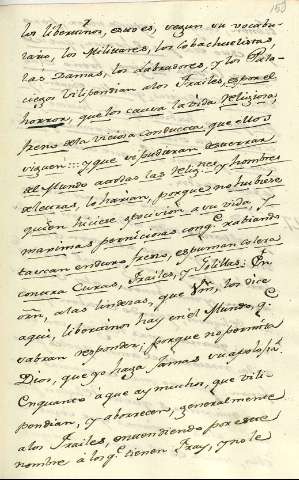 159
los libertinos, esto es, segun su vocabu-
lario, los Militares, los Cobachuelistas,
las Damas, los Labradores, y los Pala-
ciegos vilipendian a los Frailes, es por el
horror, que los causa la vida Religiosa,
freno de la viciosa conducta, que ellos
siguen... y que si pudieran desterrar
del Mundo a todas las Relig.nes y hombres
de letras, lo harian, porque no hubiese
quien hiciere oposicion a su vida, y
maximas perniciosas conq.e rabiando
tascan en duro freno, espuman colera
contra Curas, Frailes, y Golillas: En
orn̄, a las linderas, que Vm̄, los dice
aqui, libertinos hay en el Mundo, q.e
sabran responder; porque no permita
Dios, que yo haga jamas su apolog.a
En quanto à que ay muchos, que vili-
pendian, y aborrecen, generalmente
a los Frailes, entendiendo por este
nombre à los q.e tienen Fray, y no le